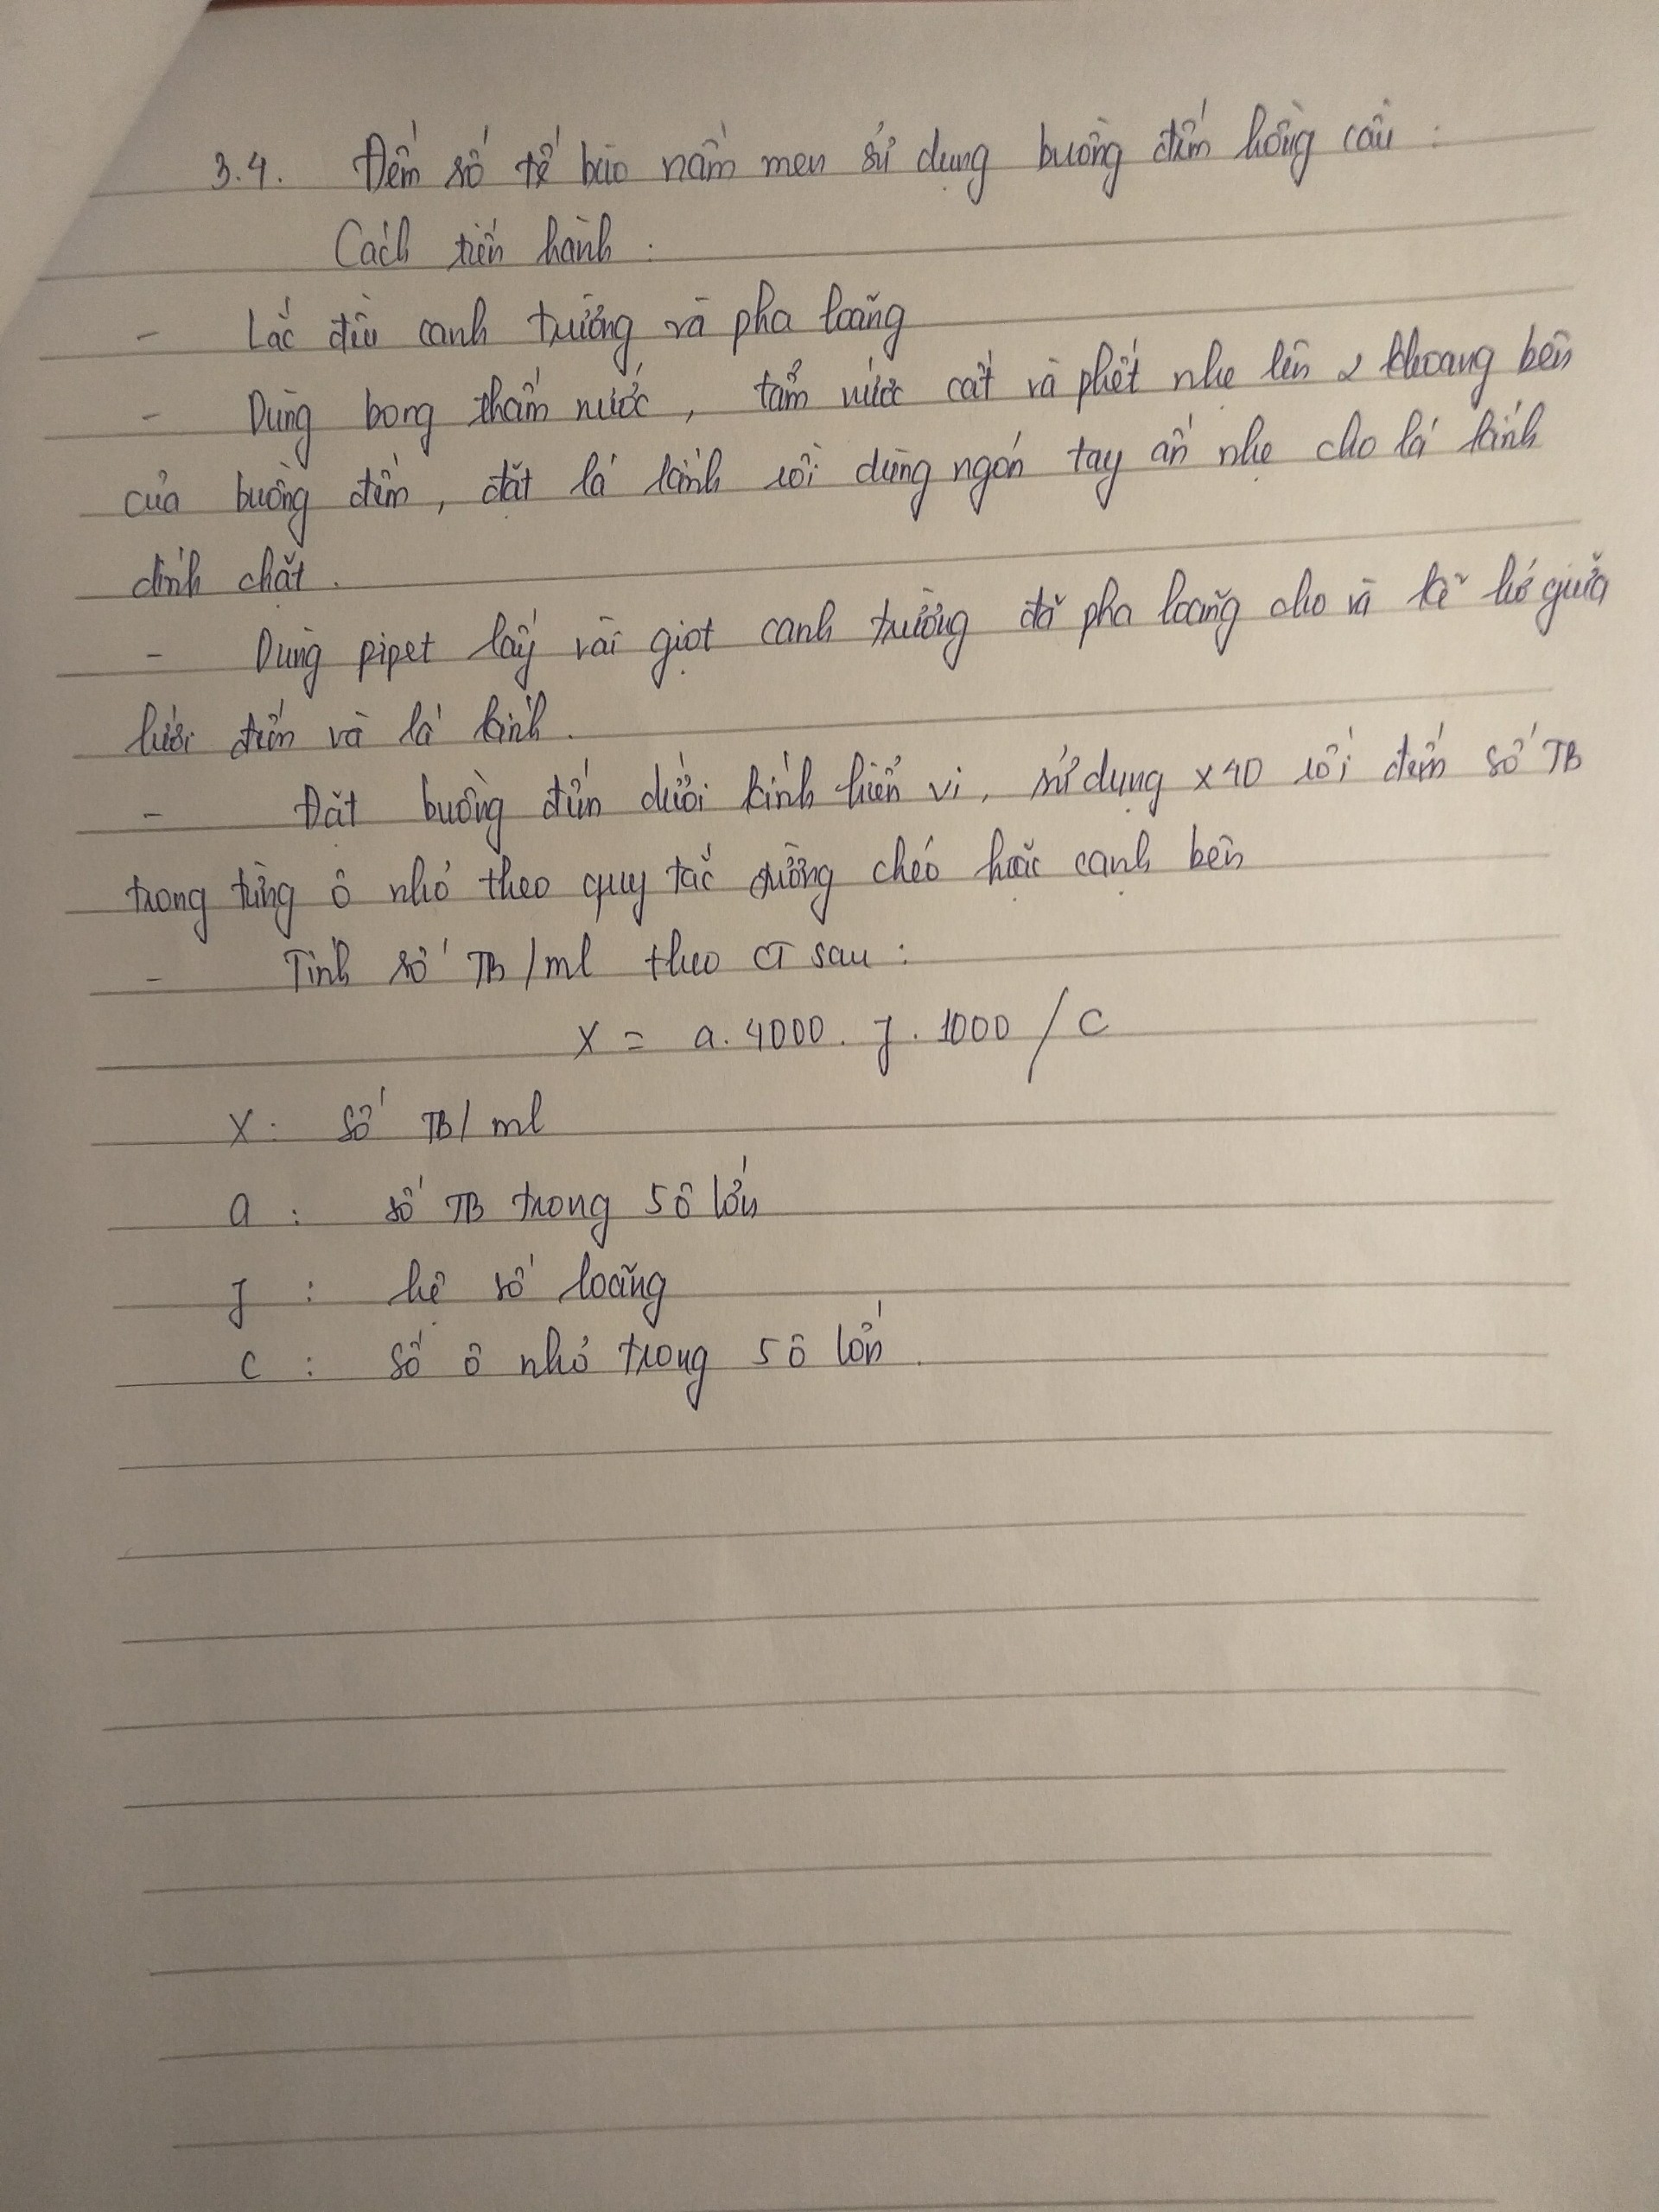 3.4. Đếm số tế bào nấm men sử dụng buồng đếm hồng cầu :
Cách tiến hành :
- Lắc đều canh trường và pha loãng
- Dùng bong thấm nước, tẩm nước cất và phết nhẹ lên 2 khoang bên
của buồng đếm, đặt lá kính rồi dùng ngón tay ấn nhẹ cho lá kính
dính chặt.
- Dùng pipet lấy vài giọt canh trường đã pha loãng cho và kẽ hở giữa
lưới đếm và lá kính.
- Đặt buồng đếm dưới kính hiển vi, sử dụng x40 rồi đếm số TB
trong từng ô nhỏ theo quy tắc đường chéo hoặc cạnh bên
- Tính số TB/ml theo CT sau :
X = a. 4000. J. 1000 / C
X : số TB/ml
a : số TB trong 5 ô lớn
J : hệ số loãng
C : số ô nhỏ trong 5 ô lớn.